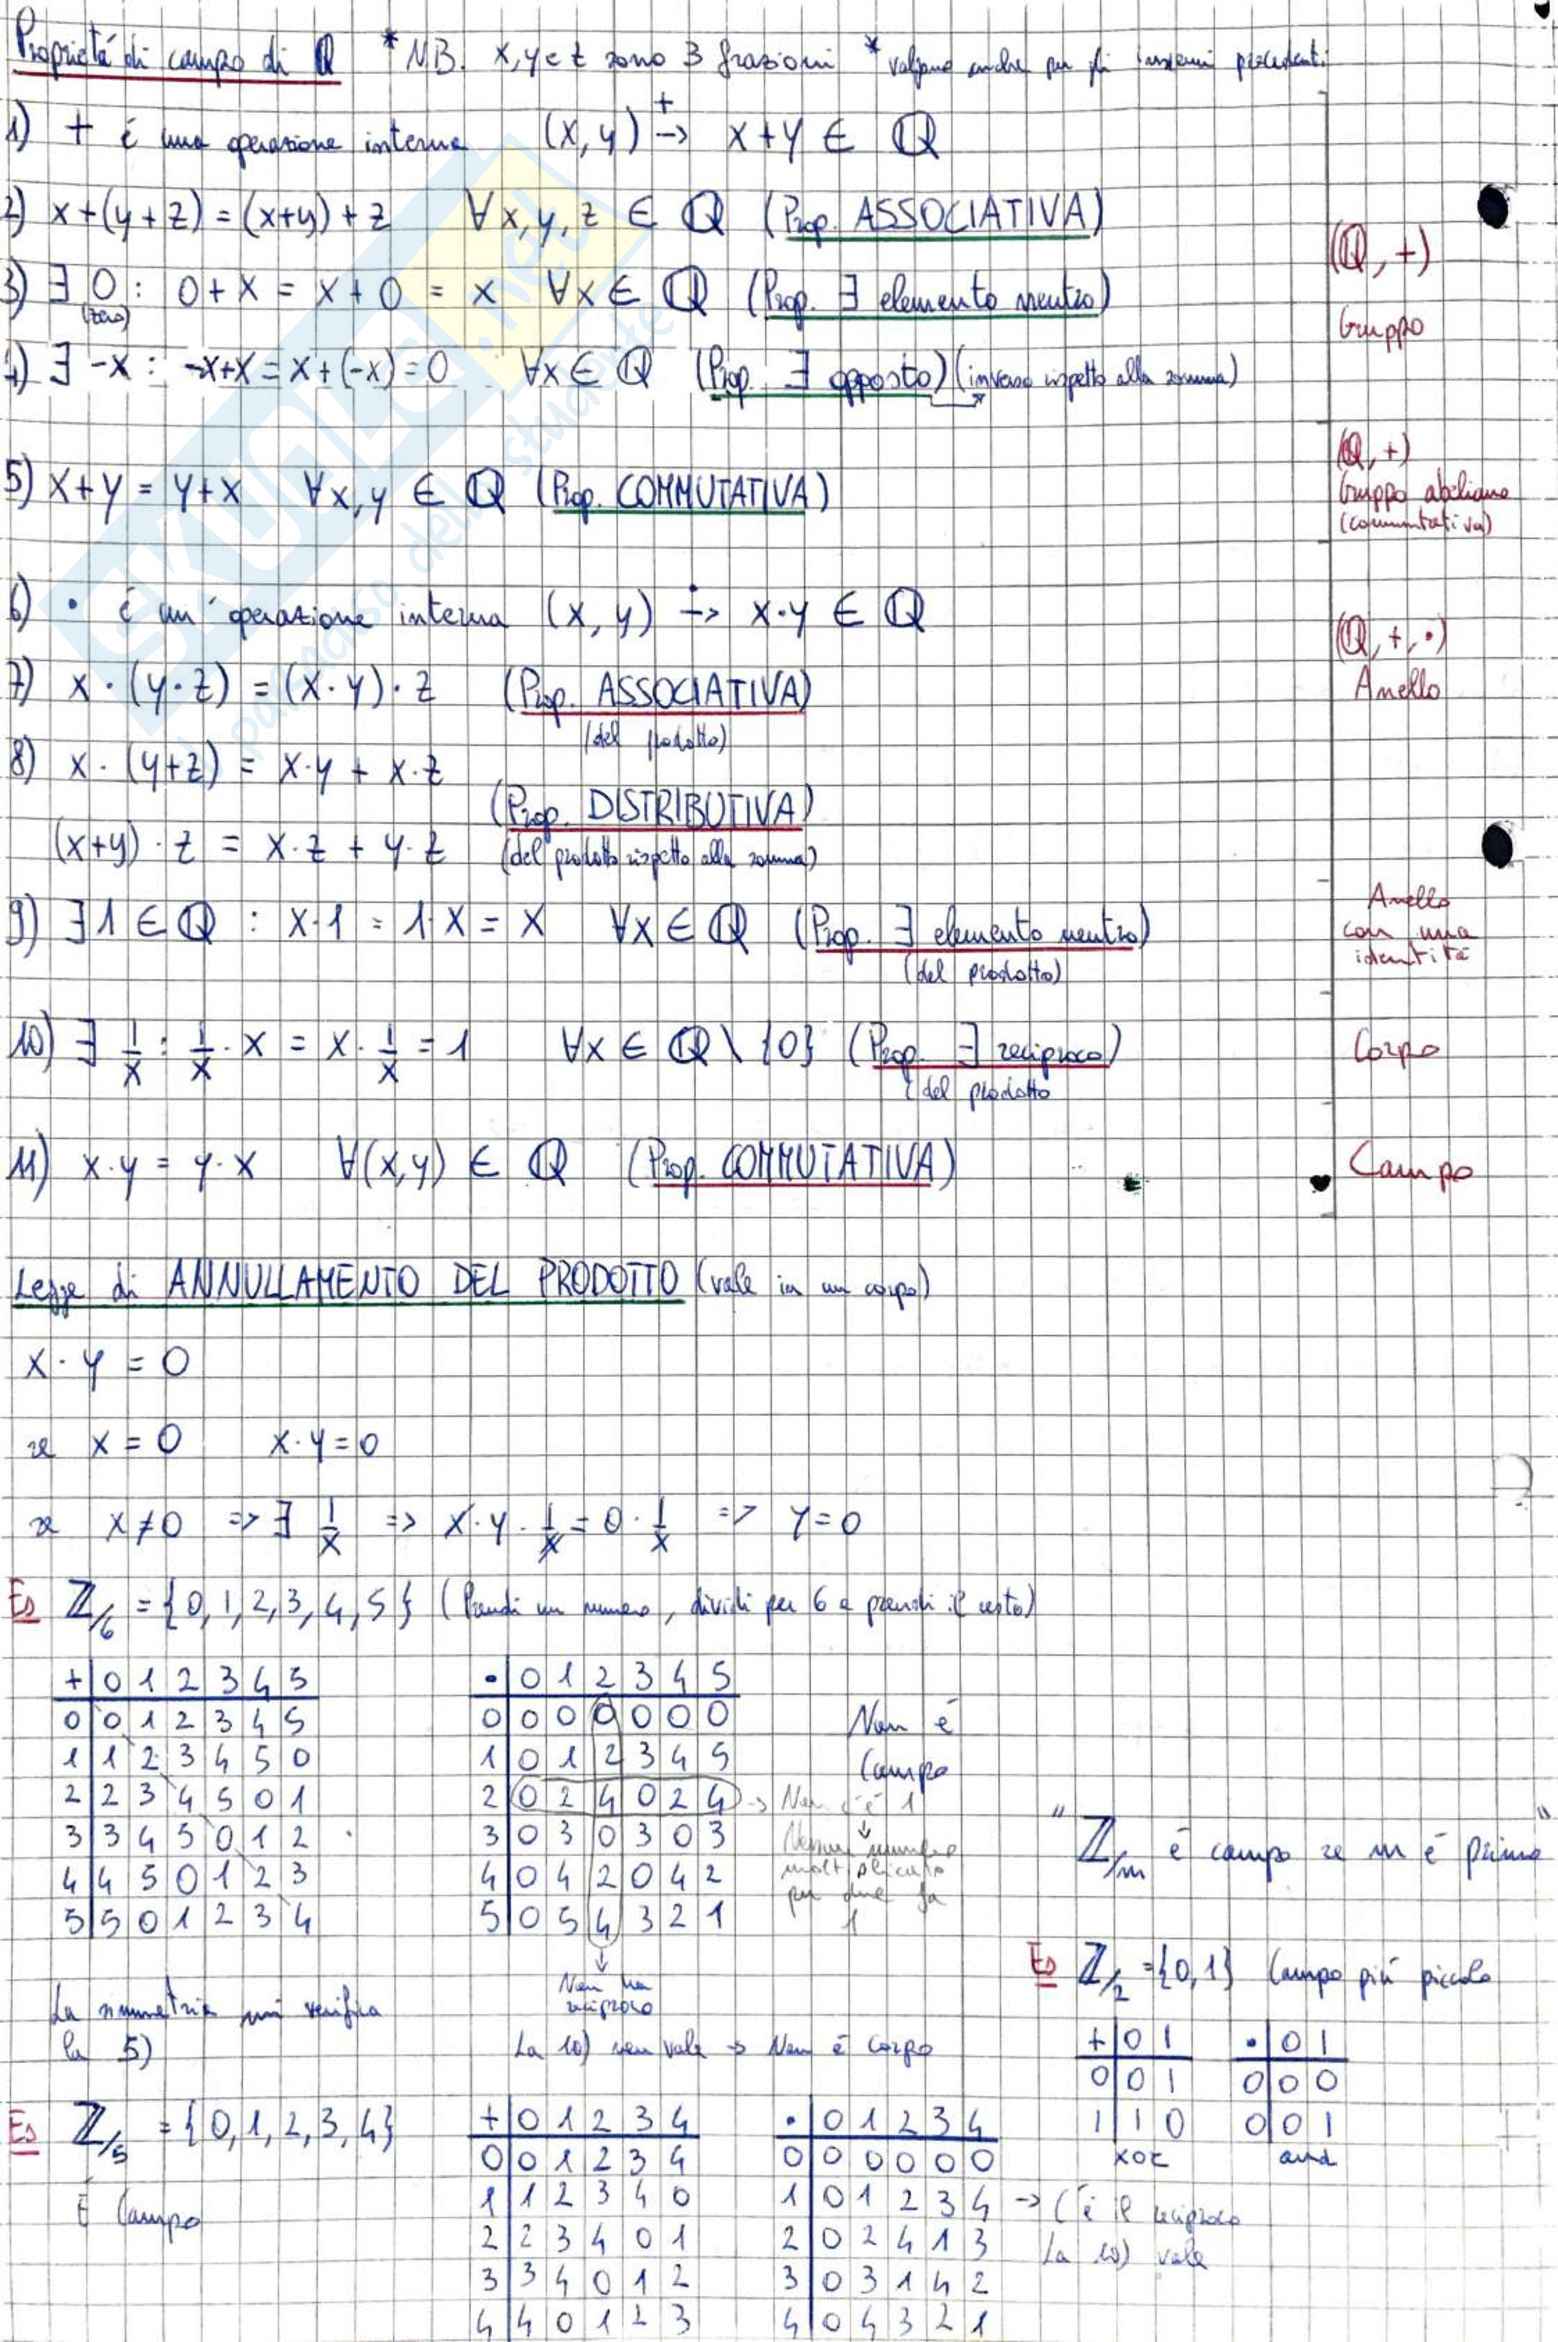 Proprietà di campo di ℚ * N.B. x, y e z sono 3 frazioni * valgono anche per gli insiemi precedenti
1) + è una operazione interna (x, y) →⁺ x+y ∈ ℚ
2) x+(y+z)=(x+y)+z ∀x,y,z ∈ ℚ (Prop. ASSOCIATIVA)
(ℚ, +)
3) ∃ 0 : 0+x = x+0 = x ∀x ∈ ℚ (Prop. ∃ elemento neutro)
(zero)
Gruppo
4) ∃ -x : -x+x=x+(-x)=0 ∀x ∈ ℚ (Prop. ∃ opposto) (inverso rispetto alla somma)
5) x+y = y+x ∀x,y ∈ ℚ (Prop. COMMUTATIVA)
(ℚ,+)
Gruppo abeliano
(commutativo)
6) • è un'operazione interna (x, y) →˙ x·y ∈ ℚ
(ℚ, +, •)
7) x·(y·z) = (x·y)·z (Prop. ASSOCIATIVA)
(del prodotto)
Anello
8) x·(y+z) = x·y + x·z
(x+y)·z = x·z + y·z
(Prop. DISTRIBUTIVA)
(del prodotto rispetto alla somma)
9) ∃1 ∈ ℚ : x·1 = 1·x = x ∀x ∈ ℚ (Prop. ∃ elemento neutro)
(del prodotto)
Anello
con una
identità
10) ∃ 1/x : 1/x · x = x · 1/x = 1 ∀x ∈ ℚ \ {0} (Prop. ∃ reciproco)
(del prodotto
Corpo
11) x·y = y·x ∀(x,y) ∈ ℚ (Prop. COMMUTATIVA)
Campo
Legge di ANNULLAMENTO DEL PRODOTTO (vale in un corpo)
x·y = 0
se x = 0 x·y=0
se x≠0 => ∃ 1/x => x·y·1/x = 0·1/x => y=0
Es ℤ/6 = {0,1,2,3,4,5} (Prendi un numero, dividi per 6 e prendi il resto)
+ 0 1 2 3 4 5
0 0 1 2 3 4 5
1 1 2 3 4 5 0
2 2 3 4 5 0 1
3 3 4 5 0 1 2
4 4 5 0 1 2 3
5 5 0 1 2 3 4
La simmetria mi verifica
la 5)
• 0 1 2 3 4 5
0 0 0 0 0 0 0
1 0 1 2 3 4 5
2 0 2 4 0 2 4 → Non c'è 1
3 0 3 0 3 0 3
4 0 4 2 0 4 2
5 0 5 4 3 2 1
Non è
Campo
↓
Nessun numero
moltiplicato
per due fa
1
↓
Non ha
reciproco
La 10) non vale → Non è corpo
"ℤ/m è campo se m è primo"
Es ℤ/2 = {0,1} Campo più piccolo
+ 0 1
0 0 1
1 1 0
xor
• 0 1
0 0 0
0 0 1
and
Es ℤ/5 = {0,1,2,3,4}
È Campo
+ 0 1 2 3 4
0 0 1 2 3 4
1 1 2 3 4 0
2 2 3 4 0 1
3 3 4 0 1 2
4 4 0 1 2 3
• 0 1 2 3 4
0 0 0 0 0 0
1 0 1 2 3 4 → C'è il reciproco
2 0 2 4 1 3 La 10) vale
3 0 3 1 4 2
4 0 4 3 2 1